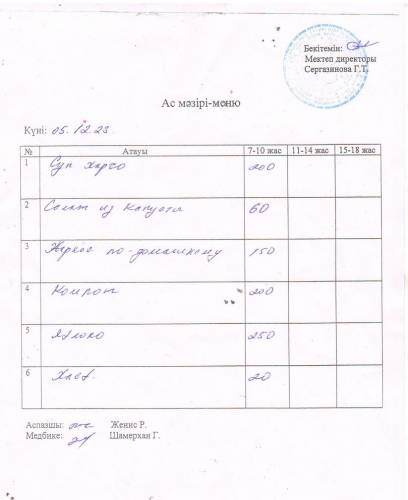 Бекітемін:
Мектеп директоры
Сергазинова Г.Т.
Ас мәзірі-меню
Күні: 05.12.23.
№ Атауы 7-10 жас 11-14 жас 15-18 жас
1 Суп харчо 200
2 Салат из капусты 60
3 Жаркое по-домашнему 150
4 Компот 200
5 Яблоко 250
6 Хлеб. 20
Аспазшы: Женис Р.
Медбике: Шамерхан Г.